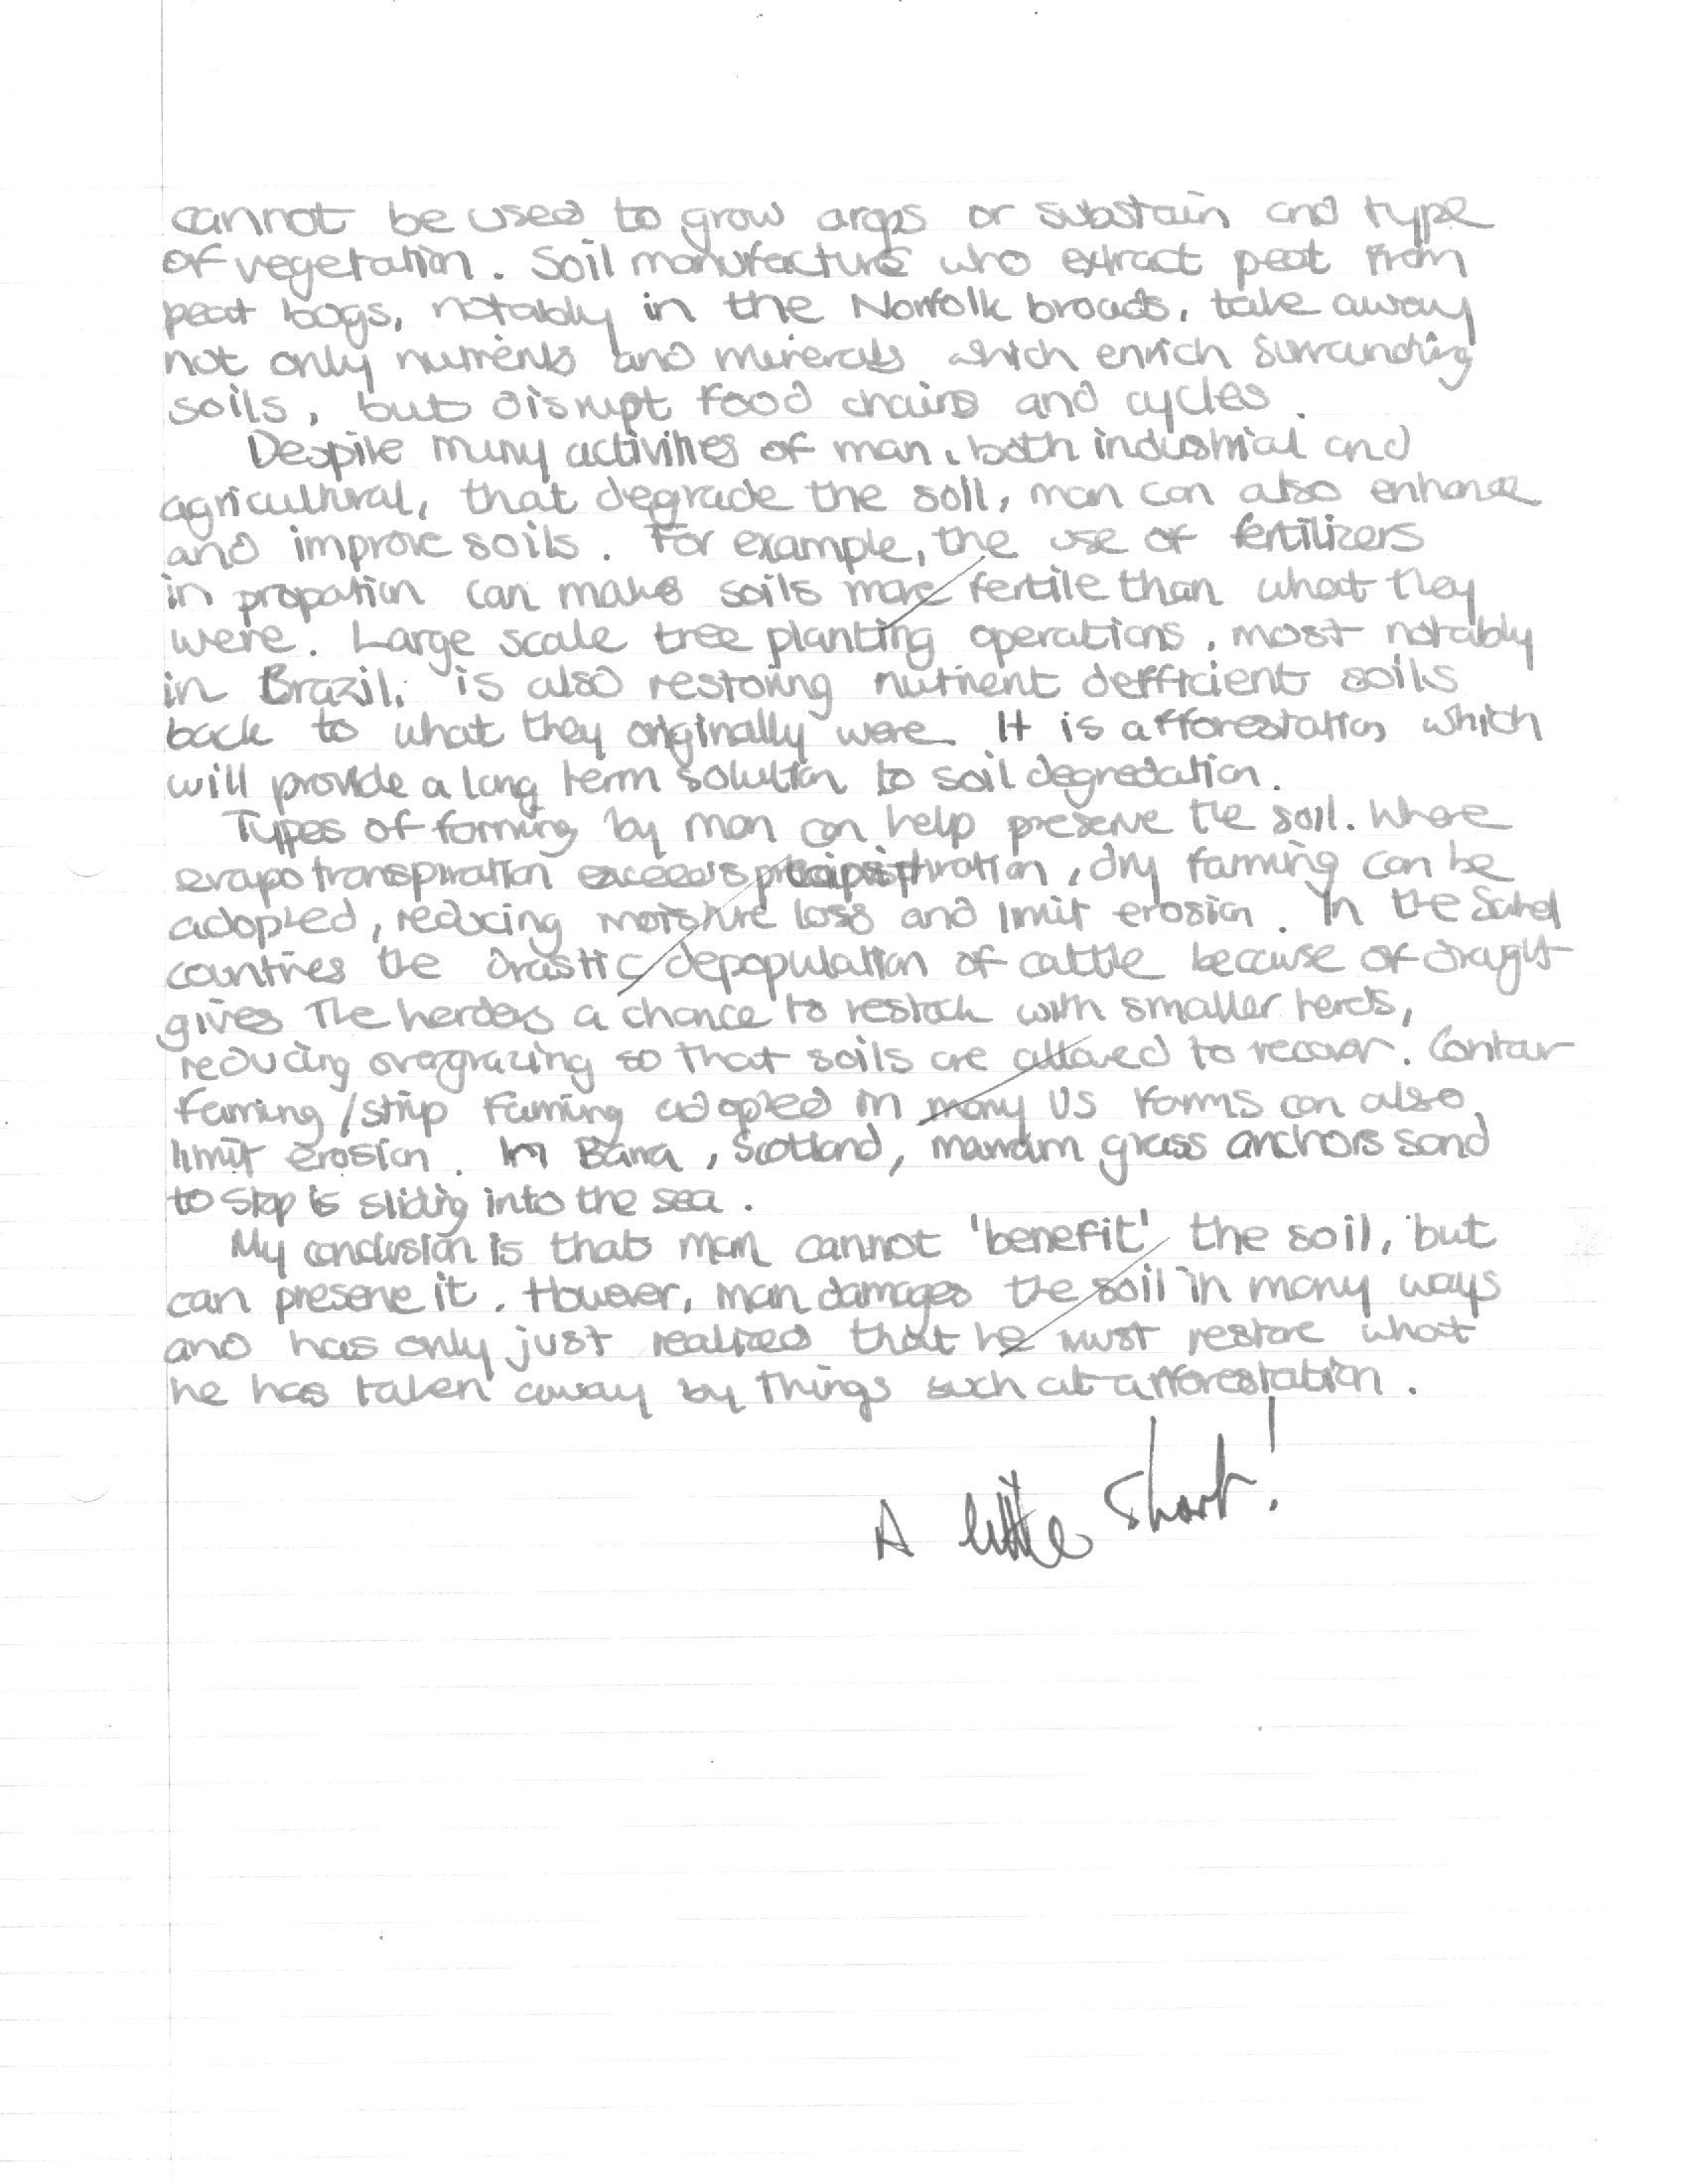 cannot be used to grow crops or substain and type
of vegetation. Soil manufacturs who extract peat from
peat bogs, notably in the Norfolk broads, take away
not only nutrients and minerals which enrich surrounding
soils, but disrupt food chains and cycles.
Despite many activities of man, both industrial and
agricultural, that degrade the soil, man can also enhance
and improve soils. For example, the use of fertilizers
in propation can make soils more fertile than what they
were. Large scale tree planting operations, most notably
in Brazil, is also restoring nutrient defficient soils
back to what they originally were. It is afforestation which
will provide a long term solution to soil degredation.
Types of farming by man can help preserve the soil. Where
evapotranspiration exceeds, dry farming can be
adopted, reducing moisture loss and limit erosion. In the Sahel
countries the drastic depopulation of cattle because of draught
gives the herders a chance to restock with smaller herds,
reducing overgrazing so that soils are allowed to recover. Contour
farming/strip farming adopted in many US farms can also
limit erosion. In Barra, Scotland, marram grass anchors sand
to stop is sliding into the sea.
My conclusion is that man cannot 'benefit' the soil, but
can preserve it. However, man damages the soil in many ways
and has only just realized that he must restore what
he has taken away by things such at afforestation.
A little short!